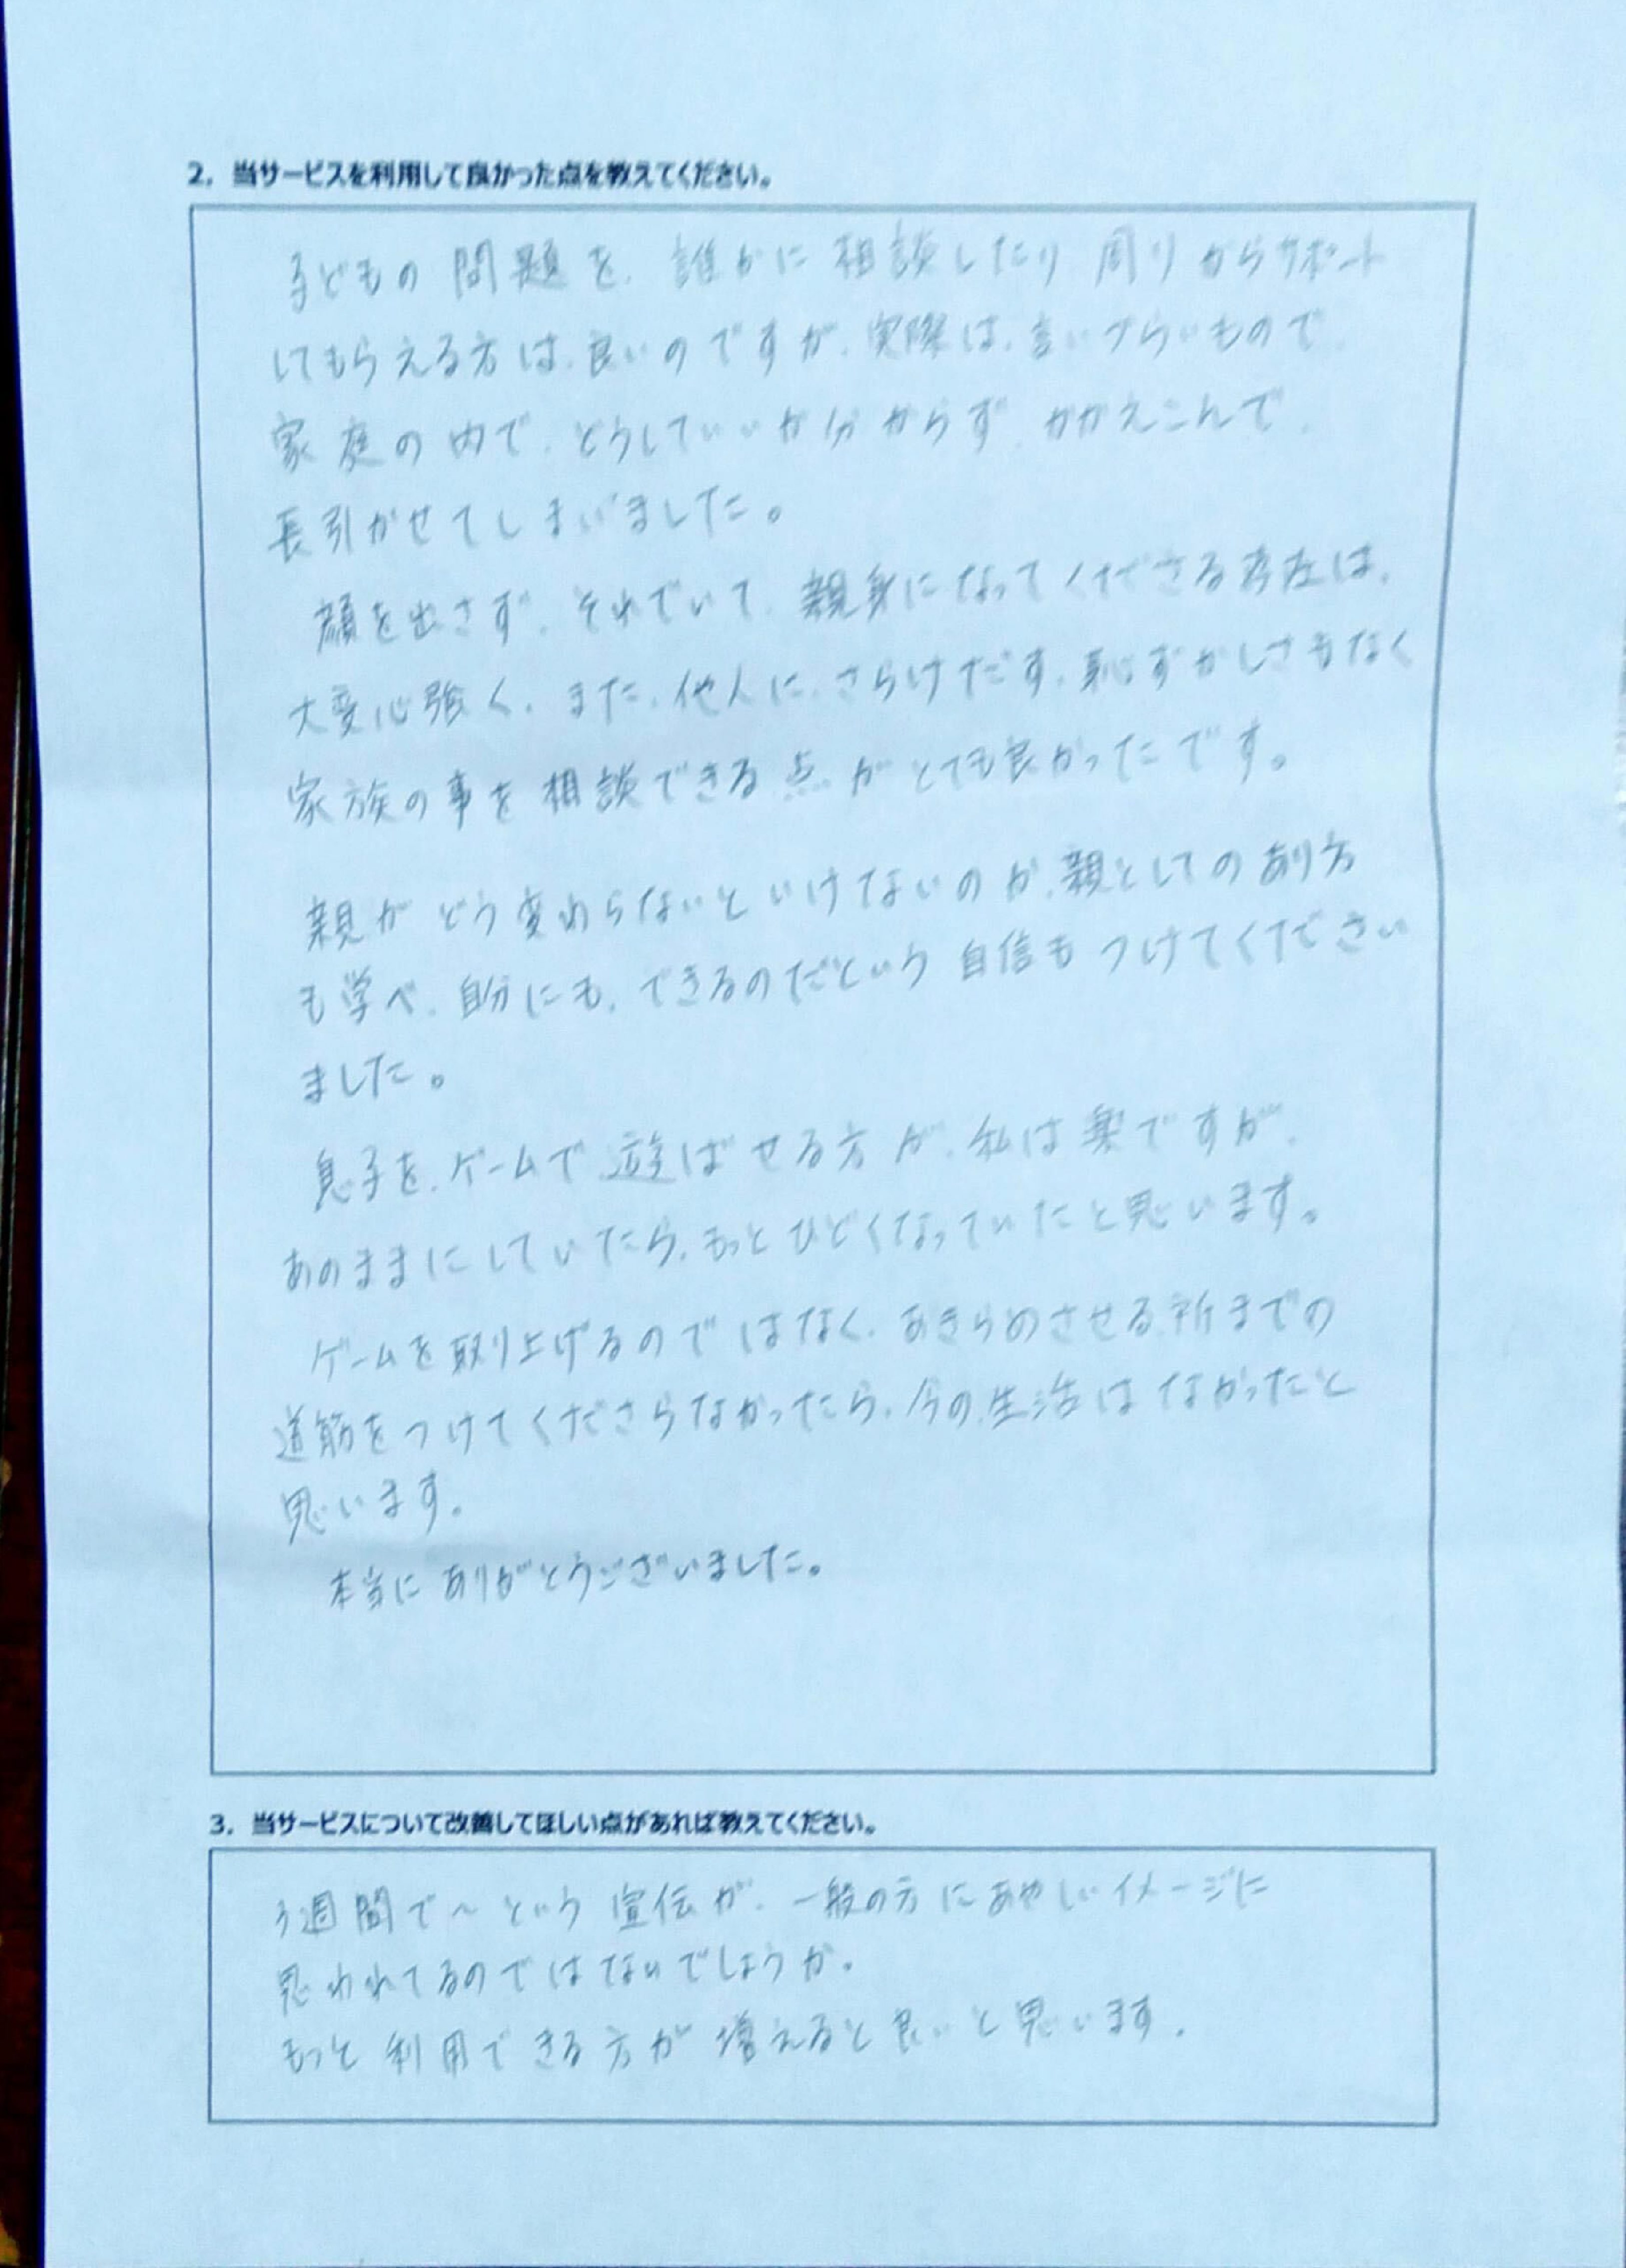 2. 当サービスを利用して良かった点を教えてください。
子どもの問題を、誰かに相談したり周りからサポート
してもらえる方は、良いのですが、実際は、言いづらいもので、
家庭の内で、どうしていいか分からず、かかえこんで、
長引かせてしまいました。
顔を出さず、それでいて、親身になってくださる存在は、
大変心強く、また、他人に、さらけだす、恥ずかしさもなく
家族の事を相談できる点がとても良かったです。
親がどう変わらないといけないのか、親としてのあり方
も学べ、自分にも、できるのだという自信もつけてください
ました。
息子を、ゲームで遊ばせる方が、私は楽ですが、
あのままにしていたら、もっとひどくなっていたと思います。
ゲームを取り上げるのではなく、あきらめさせる所までの
道筋をつけてくださらなかったら、今の生活はなかったと
思います。
本当にありがとうございました。
3. 当サービスについて改善してほしい点があれば教えてください。
3週間で〜という宣伝が、一般の方にあやしいイメージに
思われてるのではないでしょうか。
もっと利用できる方が増えると良いと思います。